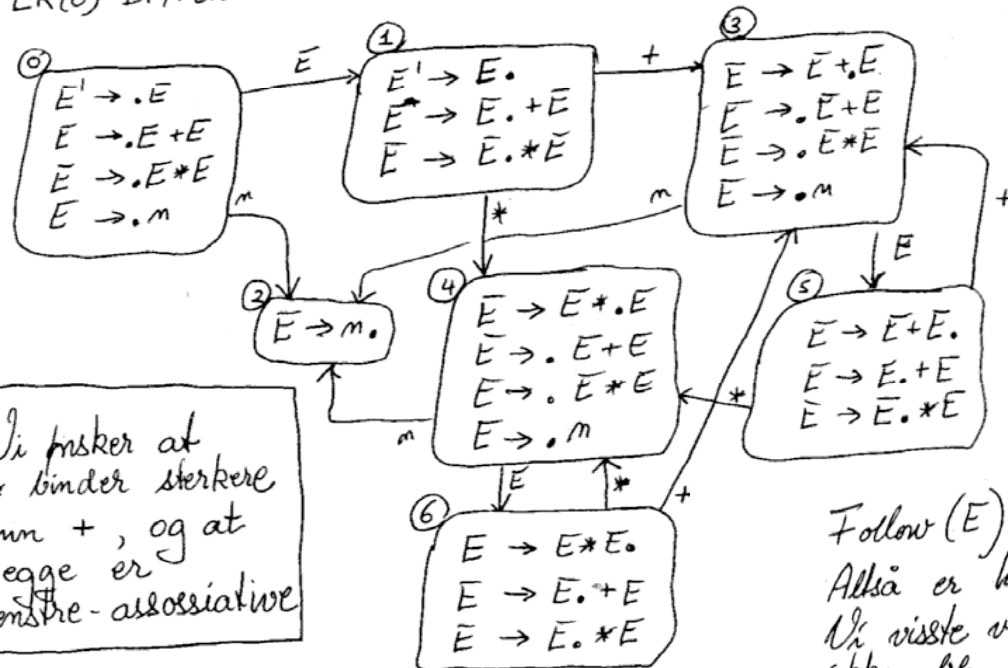 LR(0)
0
E' → .E
E → .E+E
E → .E*E
E → .n
E
n
1
E' → E.
E → E.+E
E → E.*E
+
*
3
E → E+.E
E → .E+E
E → .E*E
E → .n
n
E
+
2
E → n.
4
E → E*.E
E → .E+E
E → .E*E
E → .n
n
E
*
5
E → E+E.
E → E.+E
E → E.*E
*
+
6
E → E*E.
E → E.+E
E → E.*E
Vi ønsker at
binder sterkere
enn +, og at
begge er
venstre-assossiative
Follow (E)
Altså er
Vi visste